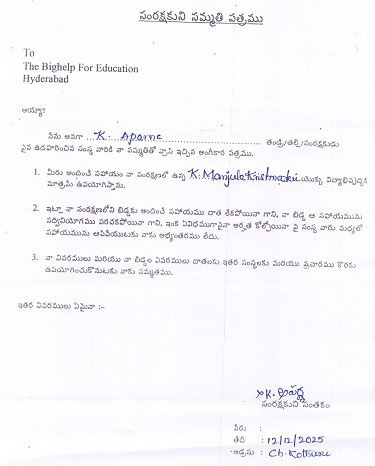 సంరక్షకుని సమ్మతి పత్రము
To
The Bighelp For Education
Hyderabad
అయ్యా!
నేను అనగా ...K. Aparna........................................ తండ్రి/తల్లి/సంరక్షకుడు
పైన ఉదహరించిన సంస్థ వారికి నా సమ్మతితో వ్రాసి ఇచ్చిన అంగీకార పత్రము.
1. మీరు అందించే సహాయం నా సంరక్షణలో ఉన్న K. Manjula యొక్కు విద్యాభివృద్ధికి
మాత్రమే ఉపయోగిస్తాను.
2. ఇట్లా నా సంరక్షణలోని బిడ్డకు అందించే సహాయము దాత లేకపోయినా గాని, నా బిడ్డ ఆ సహాయమును
సద్వినియోగము పరచకపోయినా గాని, ఇంక ఏవిధముగానైనా అర్హత కోల్పోయినా పై సంస్థ వారు మధ్యలో
సహాయమును ఆపివేయుటకు నాకు అభ్యంతరము లేదు.
3. నా వివరములు మరియు నా బిడ్డల వివరములు దాతలకు ఇతర సంస్థలకు మరియు ప్రచారము కొరకు
ఉపయోగించుకొనుటకు నాకు సమ్మతము.
ఇతర వివరములు ఏమైనా :-
K. అపర్ణ
సంరక్షకుని సంతకం
పేరు :
తేది : 12/12/2025
అడ్రసు : Ch. Kothuru